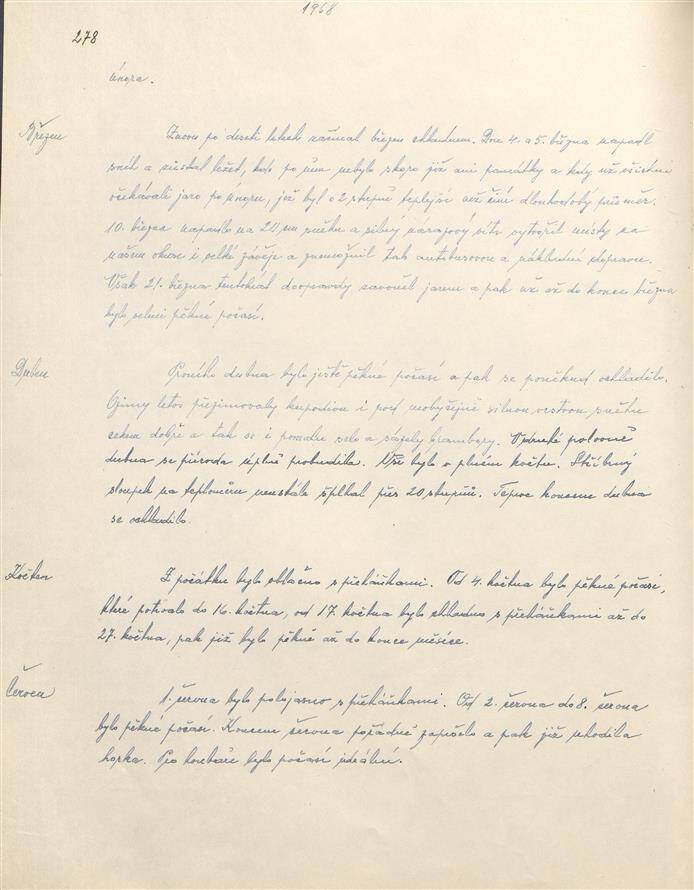 1968
278
února.
Březen
Znovu po deseti letech začínal březen chladnem. Dne 4. a 5. března napadl
sníh a zůstal ležet, kdy po něm nebylo skoro již ani památky a kdy už všichni
očekávali jaro po únoru, jež byl o 2 stupně teplejší než činí dlouhodobý průměr.
10. března napadlo na 20 cm sněhu a silný nárazový vítr vytvořil místy na
našem okrese i velké závěje a znemožnil tak autobusovou a nákladní dopravu.
Však 21. března tentokrát doopravdy zavoněl jarem a pak už až do konce března
bylo velmi pěkné počasí.
Duben
Prvního dubna bylo ještě pěkné počasí a pak se poněkud ochladilo.
Ozimy letos přezimovaly kupodivu i pod neobyčejně silnou vrstvou sněhu
celkem dobře a tak se i pomalu selo a sázely brambory. V druhé polovině
dubna se příroda úplně probudila. Vše bylo v plném květu. Stříbrný
sloupek na teploměru neustále šplhal přes 20 stupňů. Teprve koncem dubna
se ochladilo.
Květen
Z počátku bylo oblačno s přeháňkami. Od 4. května bylo pěkné počasí,
které potrvalo do 16. května, od 17. května bylo chladno s přeháňkami až do
27. května, pak již bylo pěkně až do konce měsíce.
Červen
1. června bylo polojasno s přeháňkami. Od 2. června do 8. června
bylo pěkné počasí. Koncem června pořádně zapršelo a pak již uhodila
horka. Po bouřkách bylo počasí ideální.